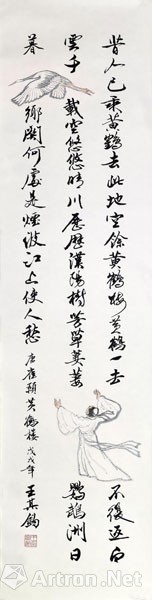 昔人已乘黄鶴去此地空餘黄鶴樓黄鶴一去不復返白
雲千載空悠悠晴川歷歷漢陽樹芳草萋萋鸚鵡洲日
暮鄉關何處是煙波江上使人愁唐崔顥黄鶴樓戊戌年王其鈞
Artron.Net